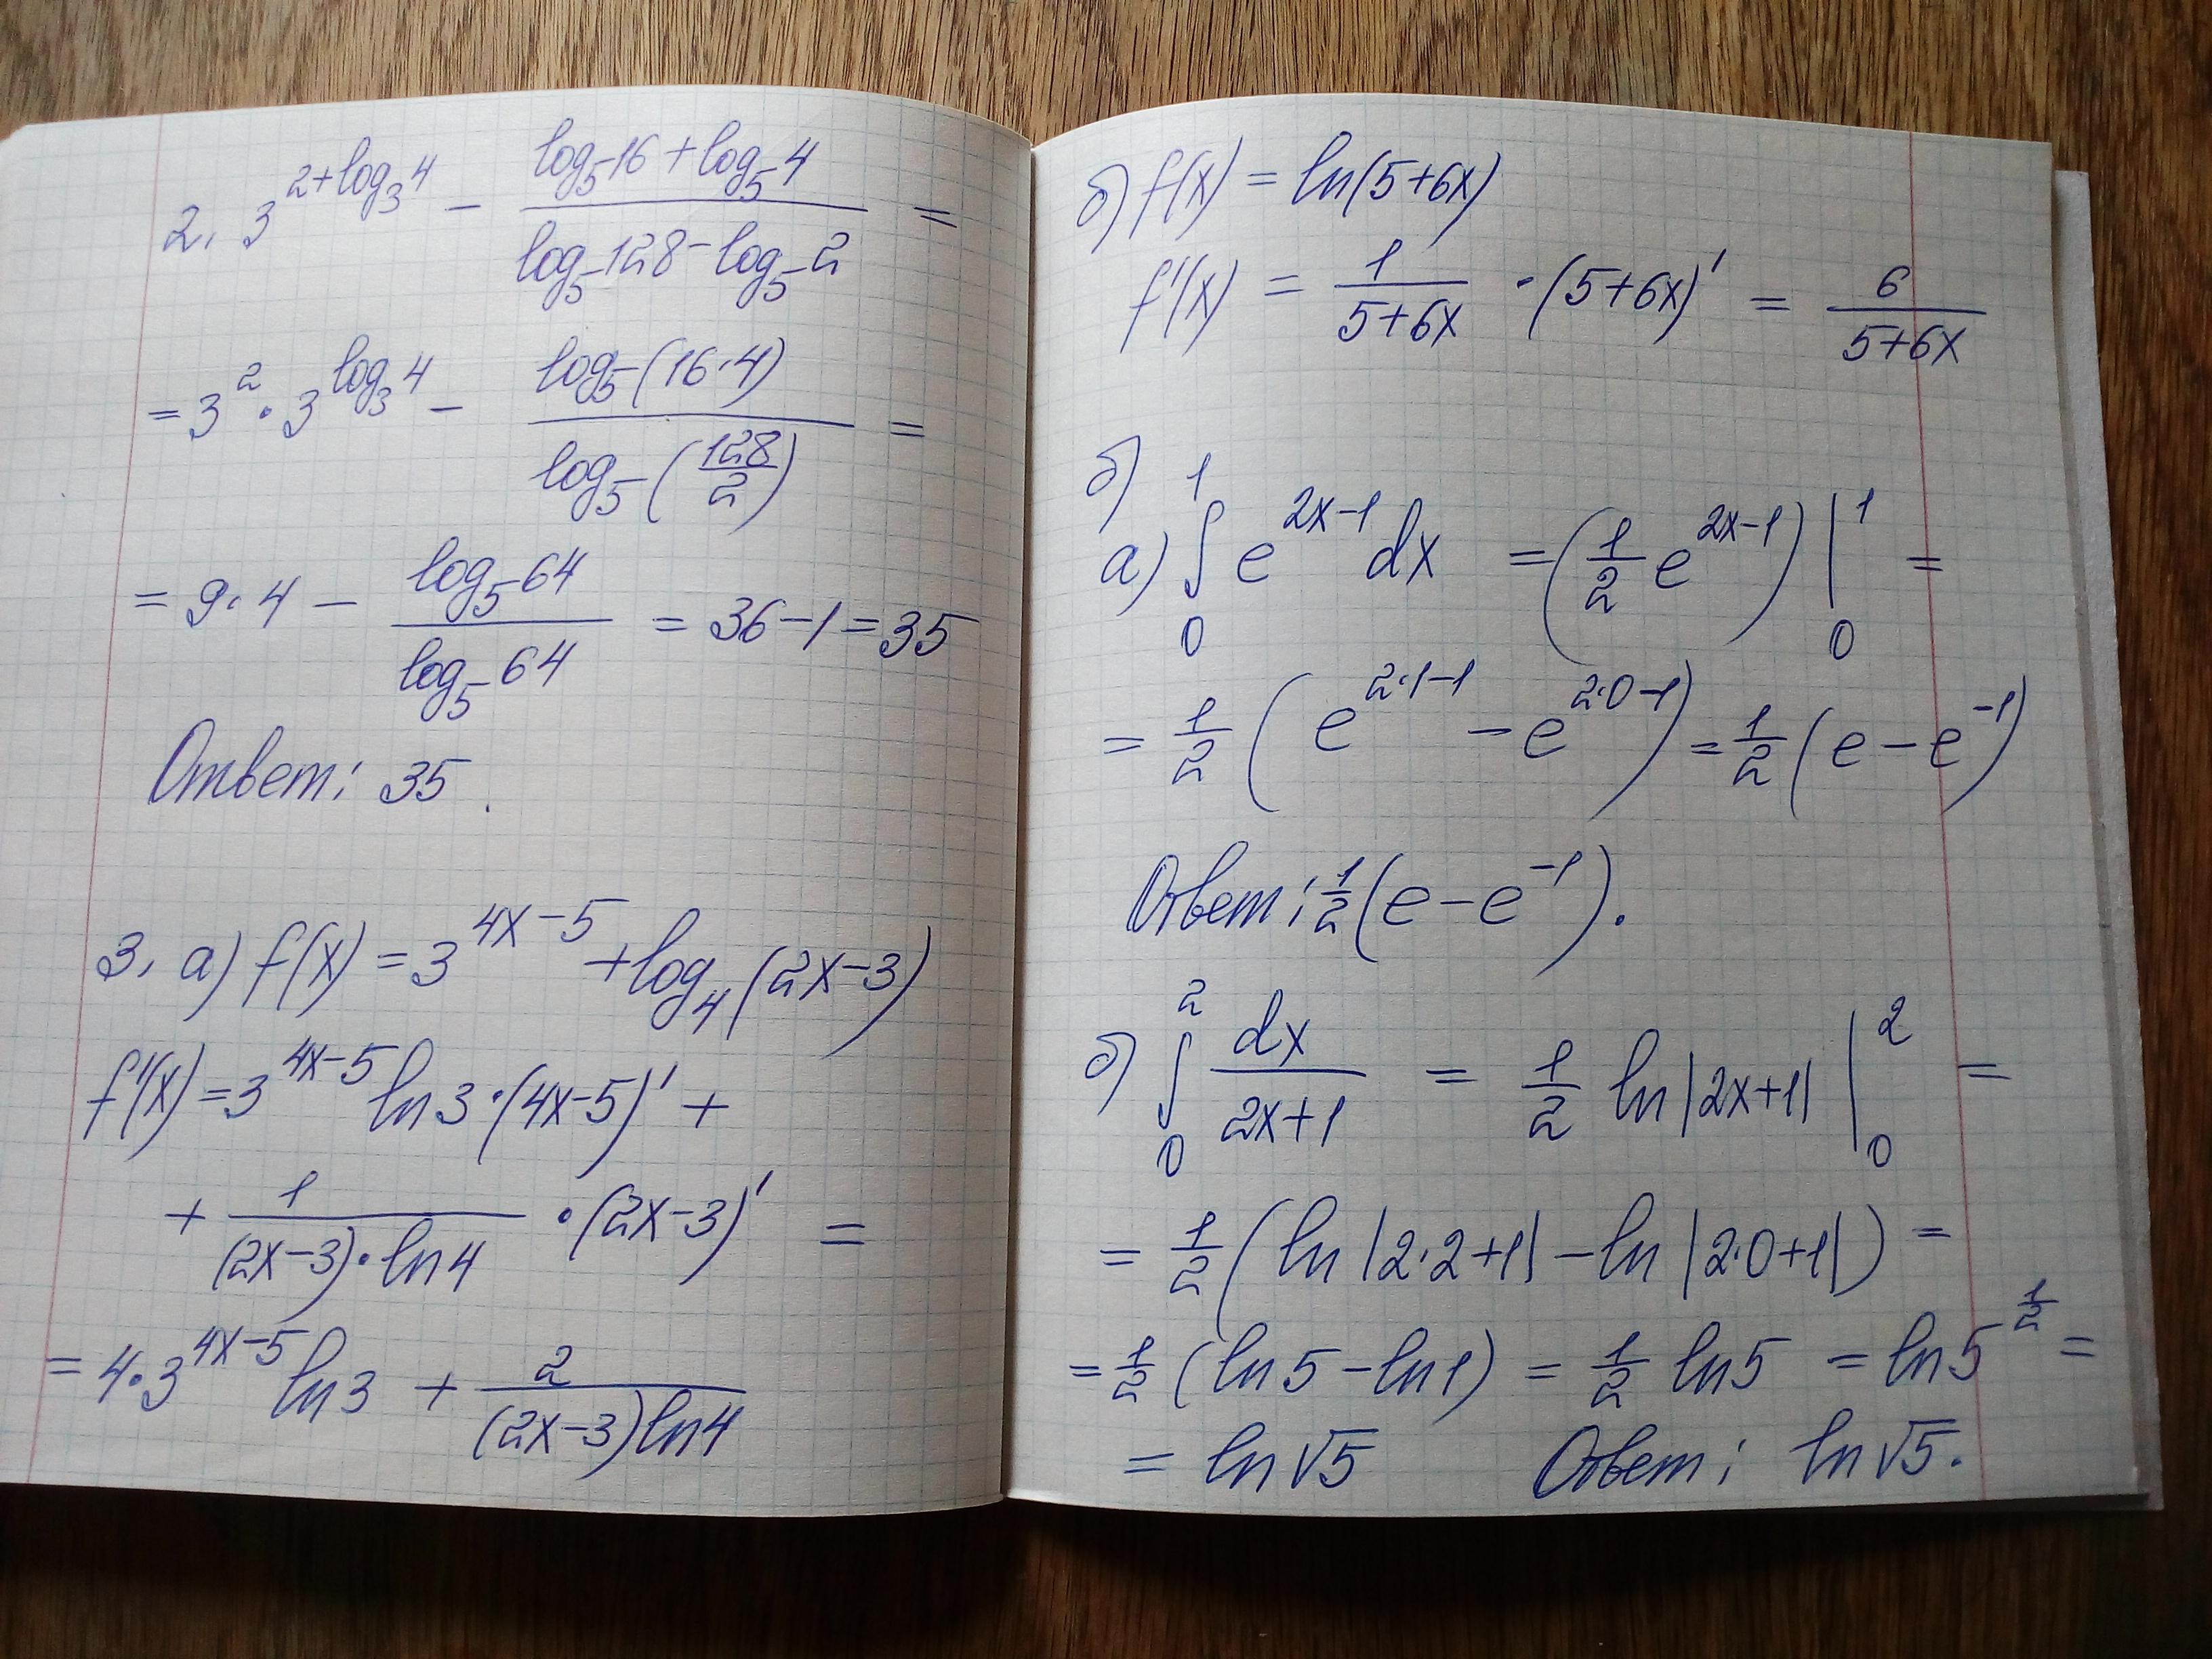 2. 3^{2+log_3 4} - \frac{log_5 16 + log_5 4}{log_5 128 - log_5 2} =
= 3^2 · 3^{log_3 4} - \frac{log_5 (16·4)}{log_5 (\frac{128}{2})} =
= 9·4 - \frac{log_5 64}{log_5 64} = 36 - 1 = 35
Ответ: 35.
3. а) f(x) = 3^{4x-5} + log_4 (2x-3)
f'(x) = 3^{4x-5} ln3·(4x-5)' +
+ \frac{1}{(2x-3)·ln4} · (2x-3)' =
= 4·3^{4x-5} ln3 + \frac{2}{(2x-3)ln4}
б) f(x) = ln(5+6x)
f'(x) = \frac{1}{5+6x} · (5+6x)' = \frac{6}{5+6x}
б)
а) ∫_0^1 e^{2x-1} dx = (\frac{1}{2} e^{2x-1}) |_0^1 =
= \frac{1}{2} (e^{2·1-1} - e^{2·0-1}) = \frac{1}{2} (e - e^{-1})
Ответ: \frac{1}{2} (e - e^{-1}).
б) ∫_0^2 \frac{dx}{2x+1} = \frac{1}{2} ln|2x+1| |_0^2 =
= \frac{1}{2} (ln|2·2+1| - ln|2·0+1|) =
= \frac{1}{2} (ln5 - ln1) = \frac{1}{2} ln5 = ln5^{\frac{1}{2}} =
= ln√5 Ответ: ln√5.